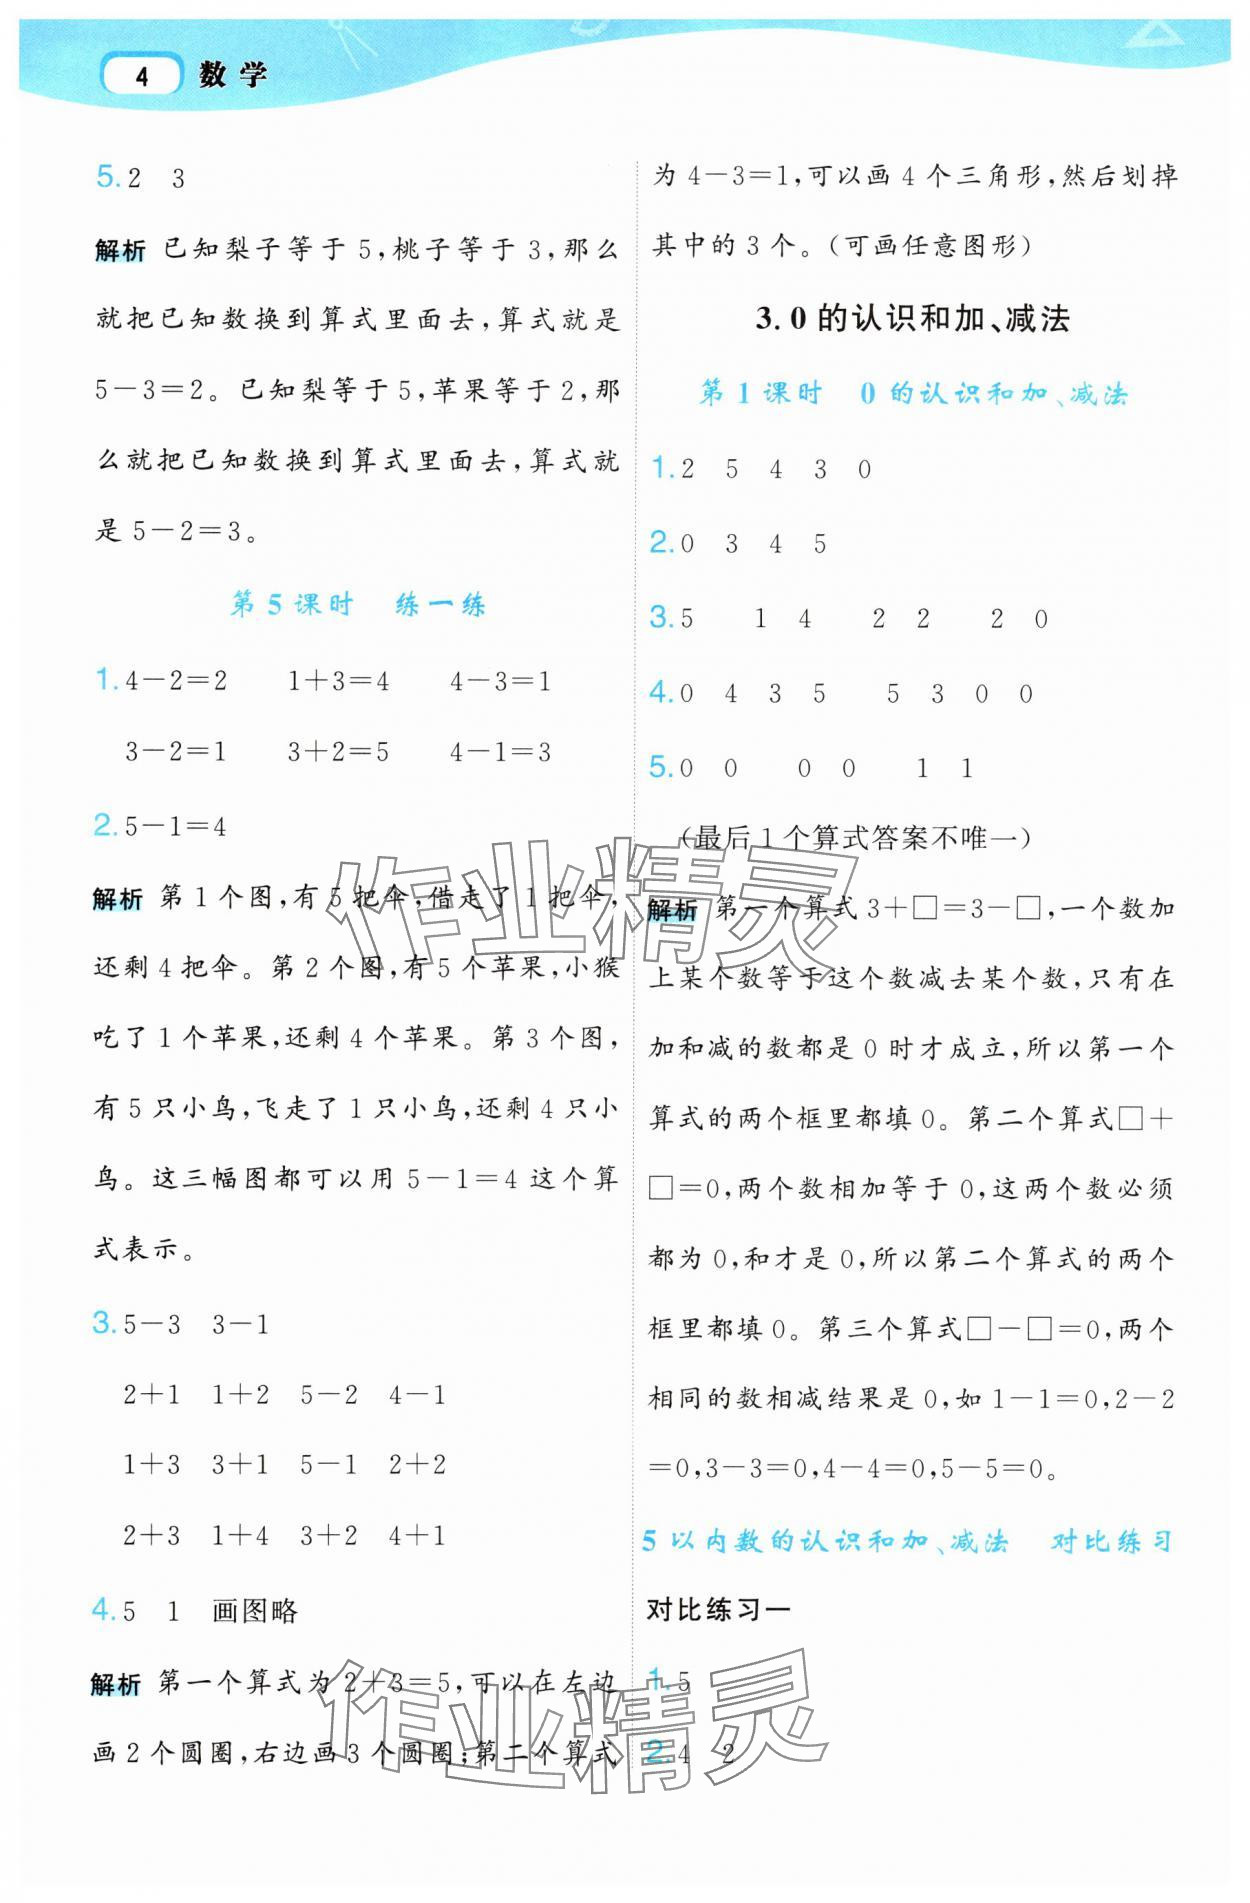 4 数学
5. 2 3
解析 已知梨子等于 5,桃子等于 3,那么
就把已知数换到算式里面去,算式就是
5-3=2。已知梨等于 5,苹果等于 2,那
么就把已知数换到算式里面去,算式就
是 5-2=3。
第 5 课时 练一练
1. 4-2=2 1+3=4 4-3=1
3-2=1 3+2=5 4-1=3
2. 5-1=4
解析 第 1 个图,有 5 把伞,借走了 1 把伞,
还剩 4 把伞。第 2 个图,有 5 个苹果,小猴
吃了 1 个苹果,还剩 4 个苹果。第 3 个图,
有 5 只小鸟,飞走了 1 只小鸟,还剩 4 只小
鸟。这三幅图都可以用 5-1=4 这个算
式表示。
3. 5-3 3-1
2+1 1+2 5-2 4-1
1+3 3+1 5-1 2+2
2+3 1+4 3+2 4+1
4. 5 1 画图略
解析 第一个算式为 2+3=5,可以在左边
画 2 个圆圈,右边画 3 个圆圈;第二个算式
为 4-3=1,可以画 4 个三角形,然后划掉
其中的 3 个。(可画任意图形)
3. 0 的认识和加、减法
第 1 课时 0 的认识和加、减法
1. 2 5 4 3 0
2. 0 3 4 5
3. 5 1 4 2 2 2 0
4. 0 4 3 5 5 3 0 0
5. 0 0 0 0 1 1
(最后 1 个算式答案不唯一)
解析 第一个算式 3+□=3-□,一个数加
上某个数等于这个数减去某个数,只有在
加和减的数都是 0 时才成立,所以第一个
算式的两个框里都填 0。第二个算式□+
□=0,两个数相加等于 0,这两个数必须
都为 0,和才是 0,所以第二个算式的两个
框里都填 0。第三个算式□-□=0,两个
相同的数相减结果是 0,如 1-1=0,2-2
=0,3-3=0,4-4=0,5-5=0。
5 以内数的认识和加、减法 对比练习
对比练习一
1. 5
2. 4 2
作业精灵
作业精灵